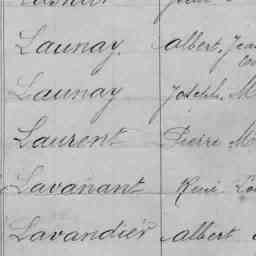 Launay. Albert, Jean
Launay Joseph, M
Laurent Pierre M
Lavanant René Lou
Lavandier Albert